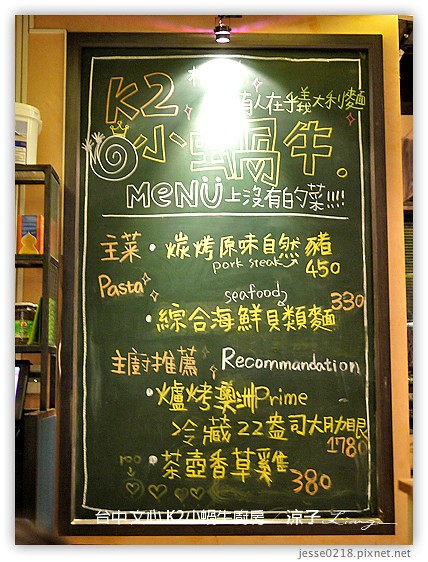 K2
有人在乎義大利麵
小蝸牛.
MENU 上沒有的菜!!!!
主菜 · 炭烤原味自然豬
pork steak 450
Pasta
seafood 330
· 綜合海鮮貝類麵
主廚推薦 Recommandation
· 爐烤澳洲Prime
冷藏22盎司大肋眼
1780
· 茶壺香草雞
380
100
台中 文心 K2小蝸牛廚房 涼子 Liang
jesse0218.pixnet.net